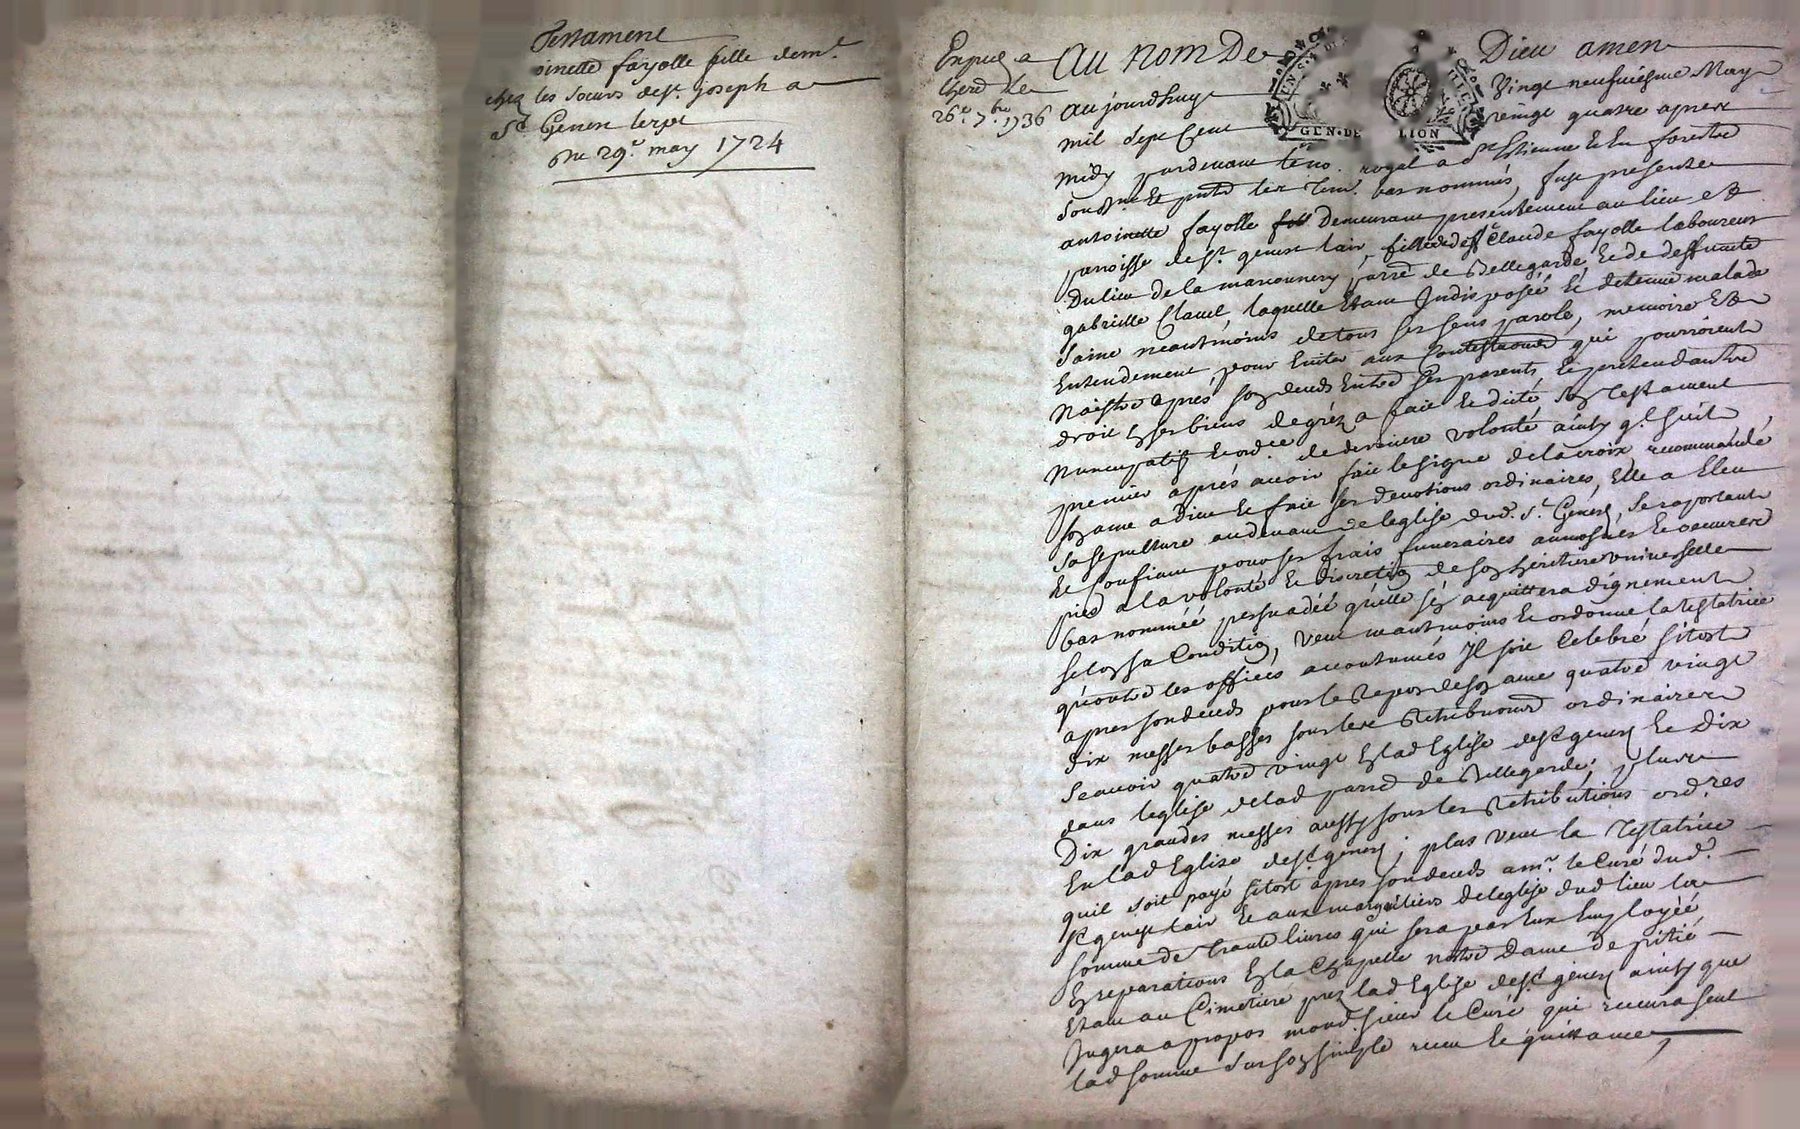 Testament
oinette fayolle fille dem.e
chez les soeurs de st. joseph a
st. Genest lerpt
Du 29e. may 1724
Expedié a
herd Le
26e. 7.bre 1736
Au nom De Dieu amen
Aujourdhuy Vingt neufviesme May
mil sept Cent vingt quatre apres
midy pardevant le no.re royal a st Estienne et en forestz
soubz.né et pntz les tem. bas nommés, fust presente
antoinette fayolle demeurant presentement au lieu et
parroisse de st. genest lair fille de deff.t Claude fayolle laboureur
Du lieu de la marconnery parre de Bellegarde et de deffuncte
gabrielle Clavel, laquelle Etant Indisposée et detenue malade
saine neantmoins de tous ses sens parole, memoire et
Entendement, pour Eviter aux Contestaons qui pourroient
Naistre apres son deceds Entre ses parents Et pretendantz
droit En ses biens de gré a fait Et dicté son Testament
Nuncupatif et ord.ce de derniere volonté ainsy q.l suit
premier aprés avoir fait le signe de la croix recommandé
son ame a Dieu Et fait ses devotions ordinaires, Elle a Eleu
sa sepulture au devant de leglise dud. st. Genest, se raportant
et Confiant pour ses frais funeraires aumosnes et oeuvres
pies a la volonté Et discretion de son heritiere universelle
bas nommée persuadée qu'elle s'en acquittera dignement
selon sa Condition, veut neantmoins Et ordonne la testatrice
qu'outre les offices accoutumés Il soit Celebré sitost
apres son deceds pour le Repos de son ame quatre vingt
dix messes basses sous les Retributions ordinaires
scavoir quatre vingt En lad Eglise de st genest Et Dix
dans leglise de lad parre de Bellegarde; plus
Dix grandes messes aussy sous les Retributions ord.res
En lad Eglise de st genest; plus veut la Testatrice
quil soit payé sitost apres son deceds a m.r le Curé dud.
st genest lair Et aux marguiliers de leglise dud lieu la
somme de trante livres qui sera par Eux Employée
En reparations En la Chapelle notre Dame de pitié
Etant au Cimetiere prez lad Eglise de st genest ainsy que
Jugera a propos mond. sieur le Curé qui recevra seul
lad somme sur son simple receu Et quittance,
GEN. DE LION